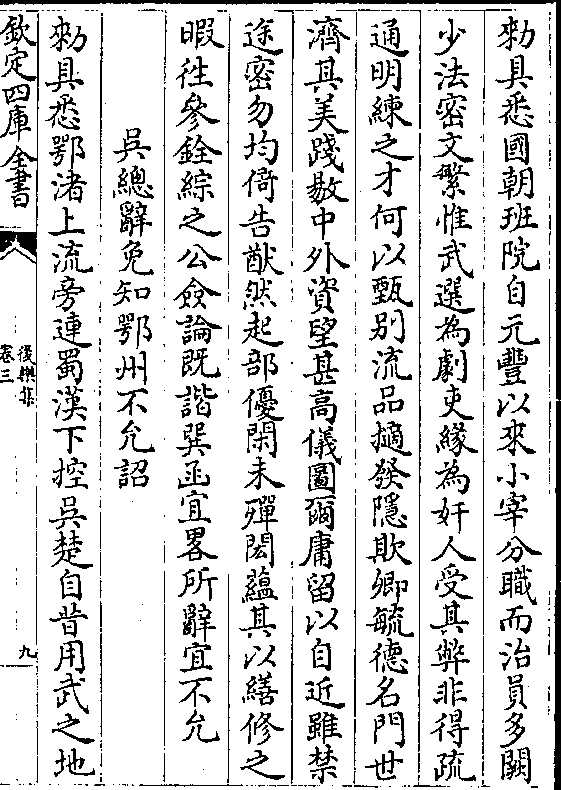 勑具悉國朝班院自元豐以來小宰分職而治員多闕
少法密文繁惟武選為劇吏緣為奸人受其弊非得疏
通明練之才何以甄别流品擿發隱欺卿毓德名門世
濟其美踐敭中外資望甚高儀圖爾庸留以自近雖禁
途密勿均倚告猷然起部優閑未殫閎蘊其以繕修之
暇徃參銓綜之公僉論既諧巽函宜畧所辭宜不允
吳總辭免知鄂州不允詔
勑具悉鄂渚上流旁連蜀漢下控吳楚自昔用武之地
欽定四庫全書
後樂集
卷三
九